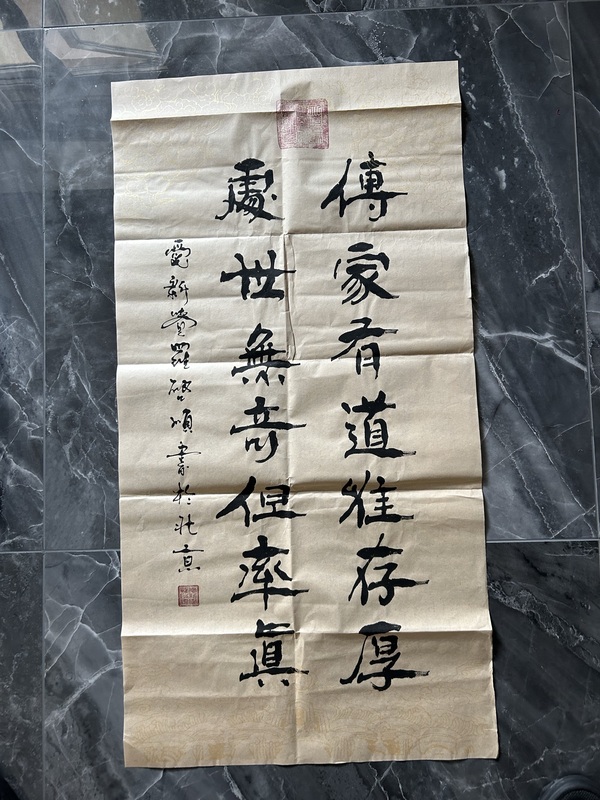 傳家有道惟存厚
處世無奇但率真
愛新覺羅啓順書於北京